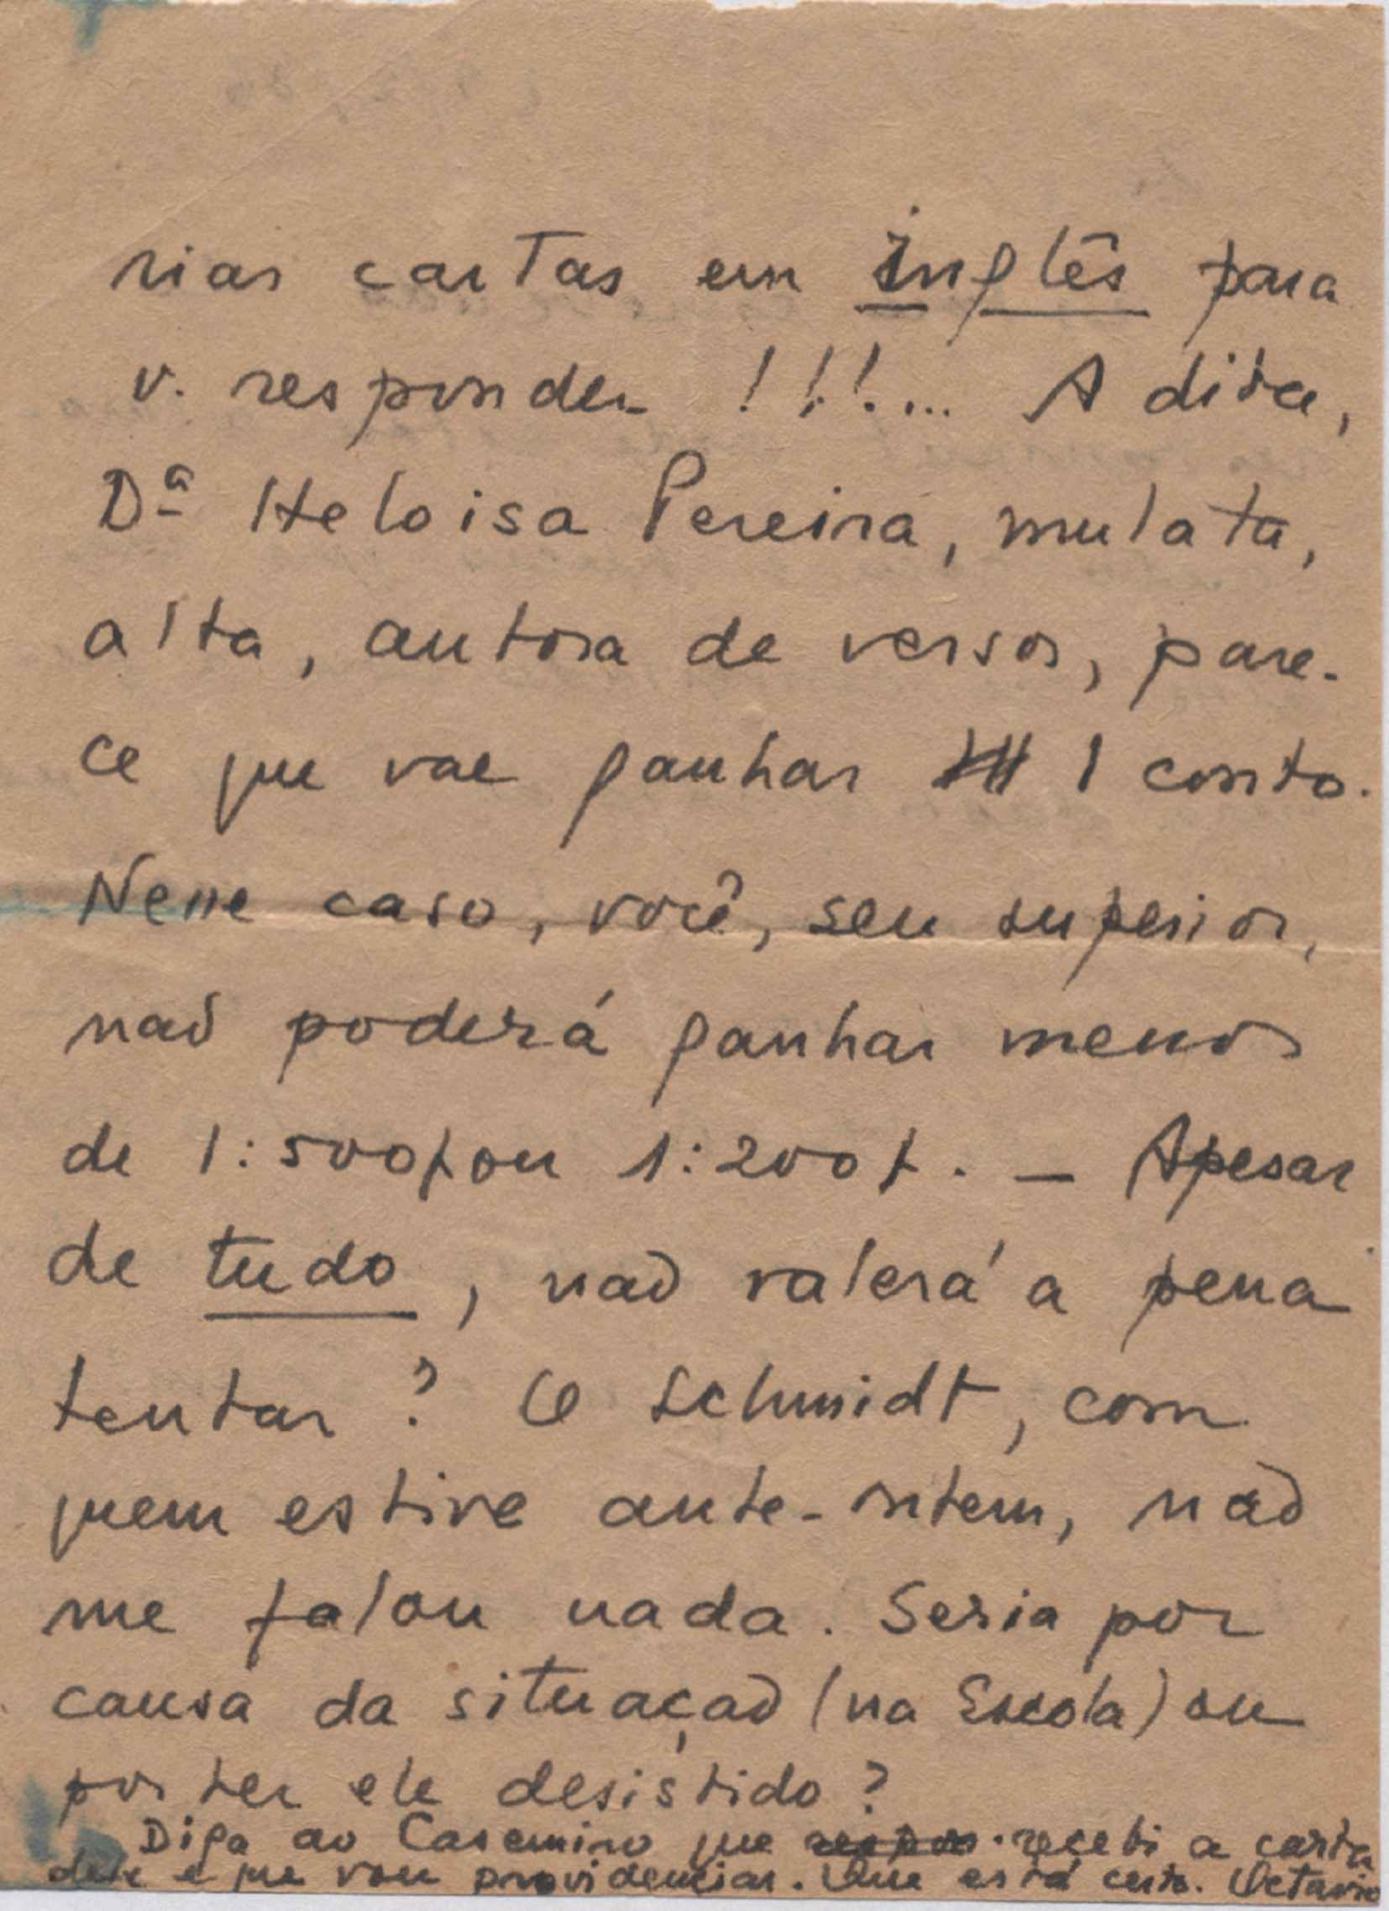 rias cartas em inglês para
v. responder !!!... A dita,
Dª Heloisa Pereira, mulata,
alta, autora de versos, pare-
ce que vae ganhar 1 conto.
Nesse caso, você, seu superior,
não poderá ganhar menos
de 1:500$ ou 1:200$. — Apesar
de tudo, não valerá a pena
tentar? O Schmidt, com
quem estive ante-ontem, não
me falou nada. Seria por
causa da situação (na Escola) ou
por ter ele desistido?
Diga ao Casemiro que recebi a carta
dele e que vou providenciar. Que está certo. Octavio